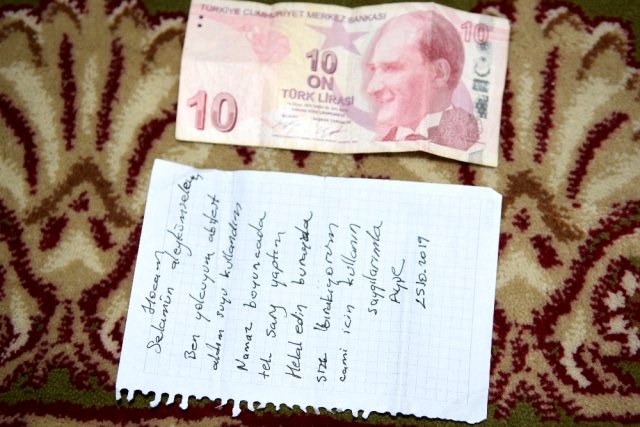 TÜRKİYE CUMHURİYET MERKEZ BANKASI
10
10
ON
TÜRK LİRASI
10
Hocam
Selamün
Ben yolcuyum abdest
aldım suyu kullandım
Namaz boyuncada
sarj yaptım
Helal edin
size bırakıyorum
cami için kullanın
saygılarımla
Ayşe
25.10.2019